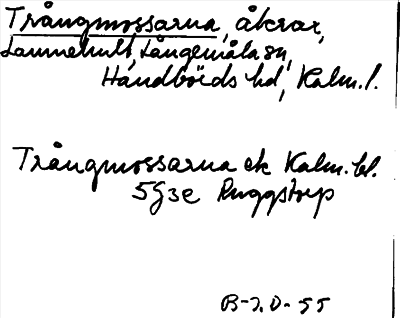 Trångmossarna, åkrar,
Lannehult, Långemåla sn,
Handbörds hd, Kalm. l.
Trångmossarna ek Kalm. bl.
5G3e Ruggstorp
B-I.O-55